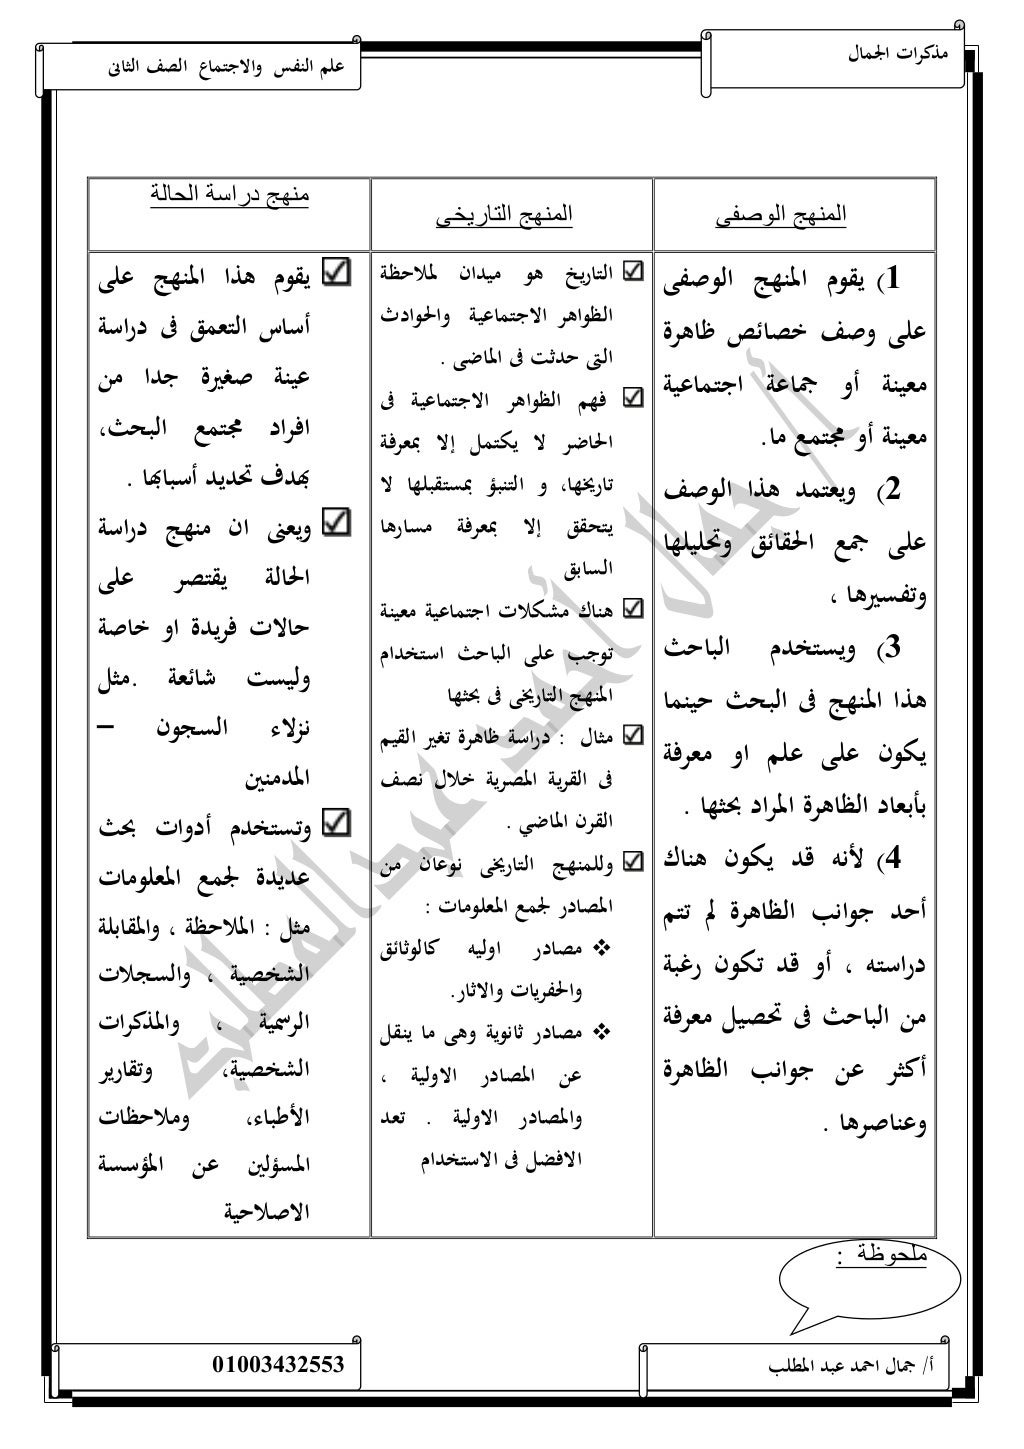 مذكرات الجمال
علم النفس والاجتماع الصف الثانى
المنهج الوصفى
1) يقوم المنهج الوصفى
على وصف خصائص ظاهرة
معينة أو جماعة اجتماعية
معينة أو مجتمع ما.
2) ويعتمد هذا الوصف
على جمع الحقائق وتحليلها
وتفسيرها ،
3) ويستخدم الباحث
هذا المنهج فى البحث حينما
يكون على علم او معرفة
بأبعاد الظاهرة المراد بحثها .
4) لأنه قد يكون هناك
أحد جوانب الظاهرة لم تتم
دراسته ، أو قد تكون رغبة
من الباحث فى تحصيل معرفة
أكثر عن جوانب الظاهرة
وعناصرها .
المنهج التاريخى
التاريخ هو ميدان لملاحظة
الظواهر الاجتماعية والحوادث
التى حدثت فى الماضى .
فهم الظواهر الاجتماعية فى
الحاضر لا يكتمل إلا بمعرفة
تاريخها، و التنبؤ بمستقبلها لا
يتحقق إلا بمعرفة مسارها
السابق
هناك مشكلات اجتماعية معينة
توجب على الباحث استخدام
المنهج التاريخى فى بحثها
مثال : دراسة ظاهرة تغير القيم
فى القرية المصرية خلال نصف
القرن الماضي .
وللمنهج التاريخى نوعان من
المصادر لجمع المعلومات :
❖ مصادر اوليه كالوثائق
والحفريات والاثار.
❖ مصادر ثانوية وهى ما ينقل
عن المصادر الاولية ،
والمصادر الاولية . تعد
الافضل فى الاستخدام
منهج دراسة الحالة
يقوم هذا المنهج على
أساس التعمق فى دراسة
عينة صغيرة جدا من
افراد مجتمع البحث،
بهدف تحديد أسبابها .
ويعنى ان منهج دراسة
الحالة يقتصر على
حالات فريدة او خاصة
وليست شائعة .مثل
نزلاء السجون –
المدمنين
وتستخدم أدوات بحث
عديدة لجمع المعلومات
مثل : الملاحظة ، والمقابلة
الشخصية ، والسجلات
الرسمية ، والمذكرات
الشخصية، وتقارير
الأطباء، وملاحظات
المسؤلين عن المؤسسة
الاصلاحية
أ/ جمال أحمد عبد المطلب
ملحوظة :
أ/ جمال احمد عبد المطلب
01003432553